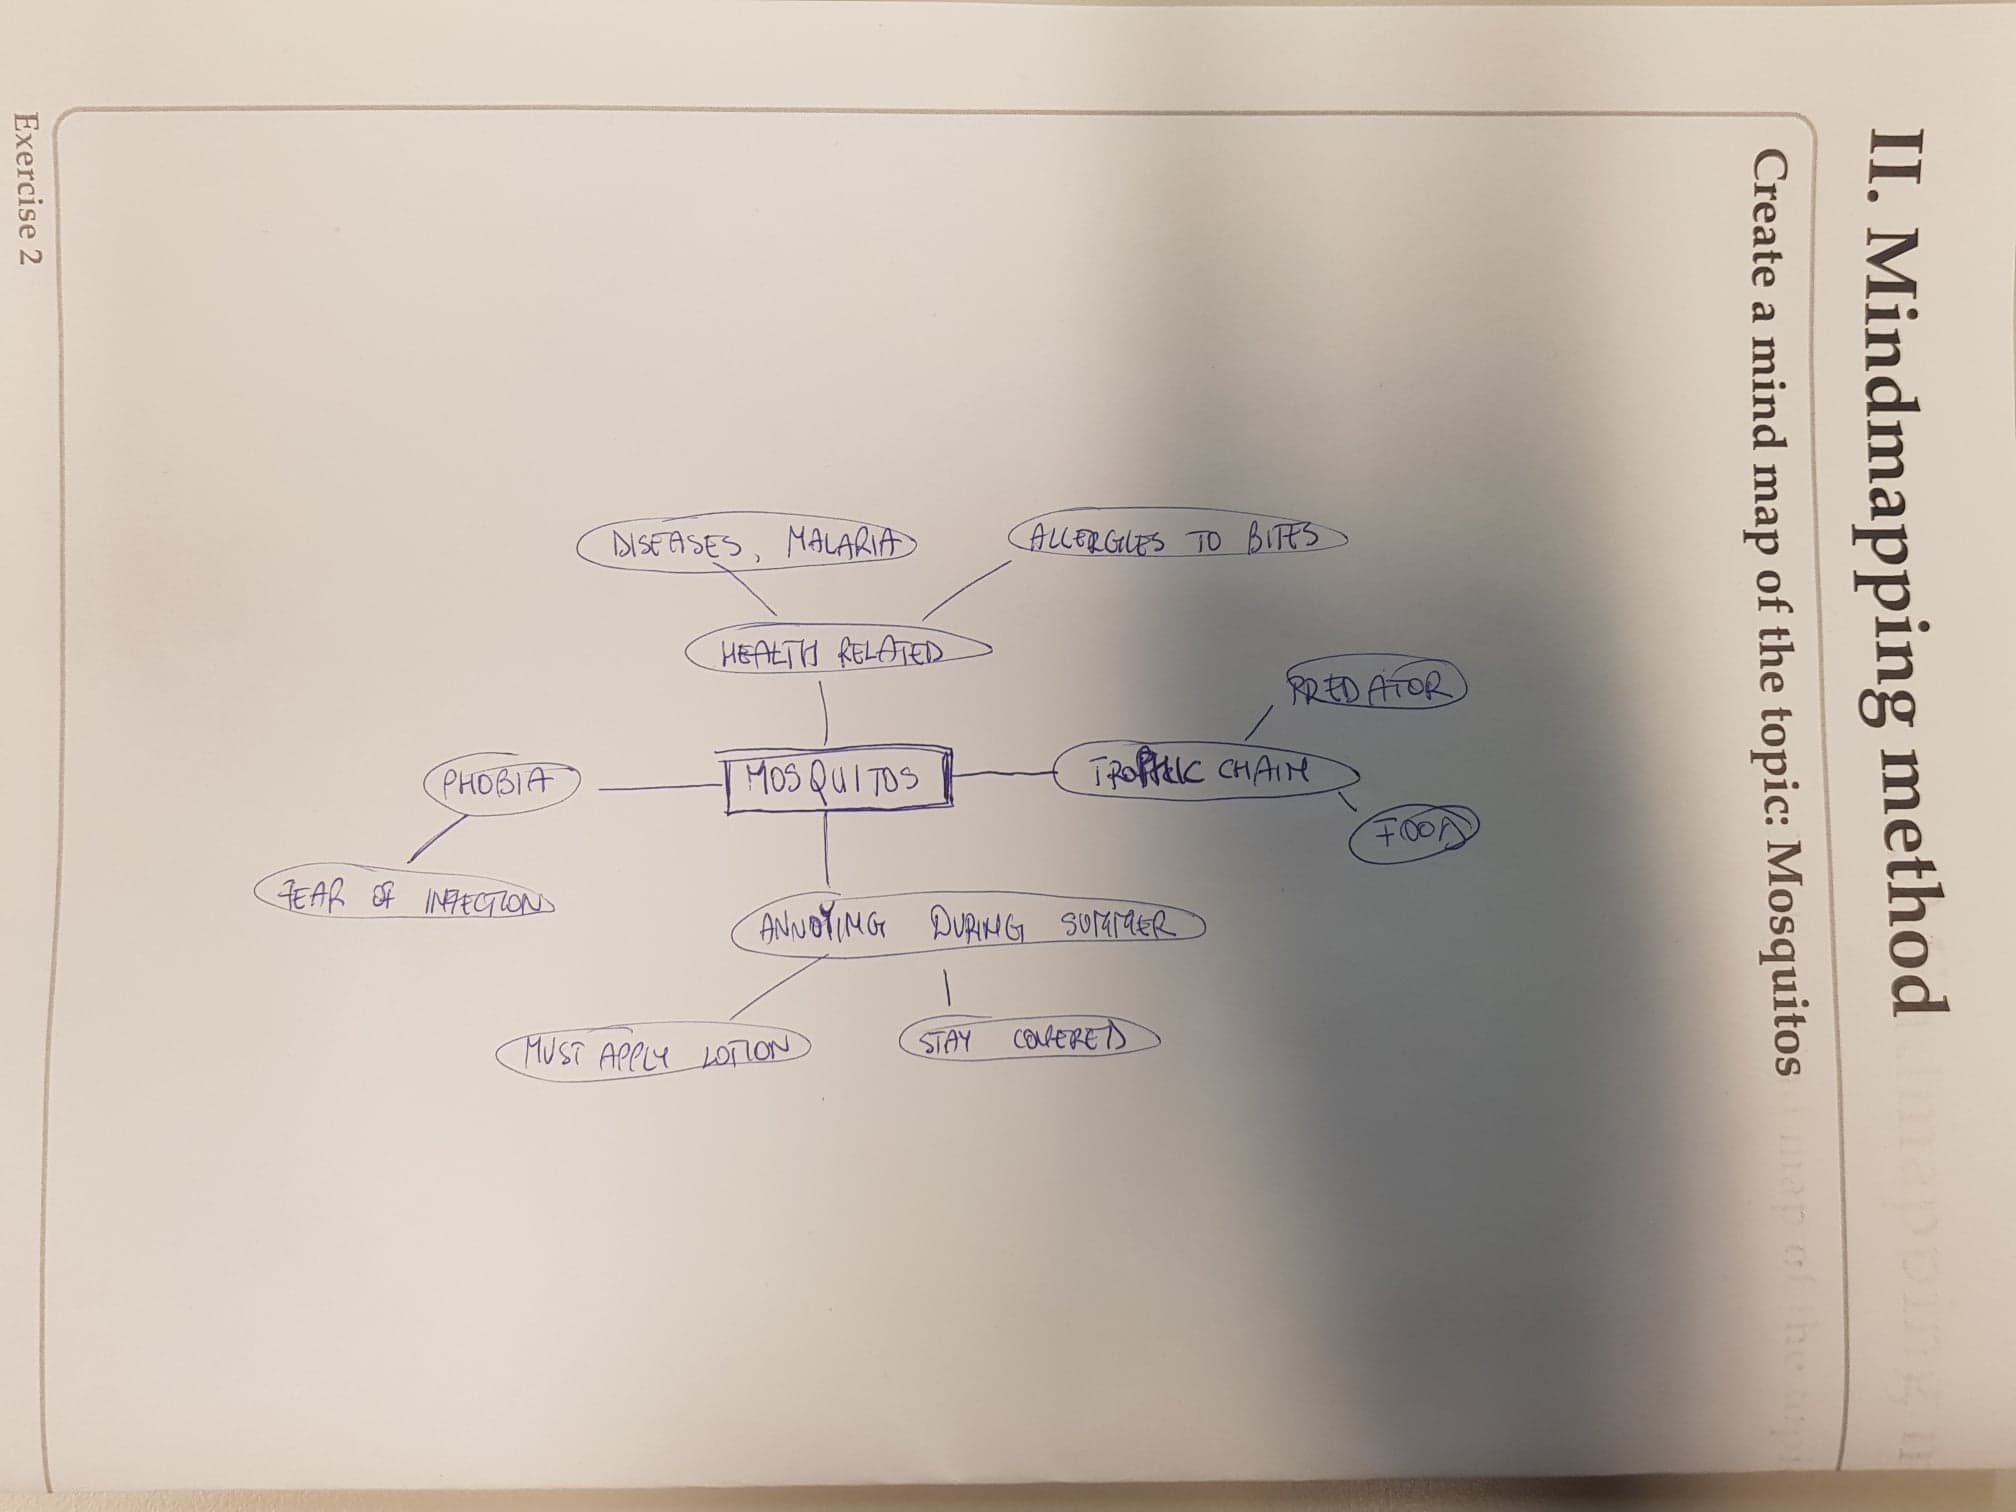 II. Mindmapping method
Create a mind map of the topic: Mosquitos
DISEASES, MALARIA
ALLERGIES TO BITES
HEALTH RELATED
PREDATOR
PHOBIA
MOSQUITOS
TROPHIC CHAIN
FOOD
FEAR OF INFECTION
ANNOYING DURING SUMMER
MUST APPLY LOTION
STAY COVERED
Exercise 2